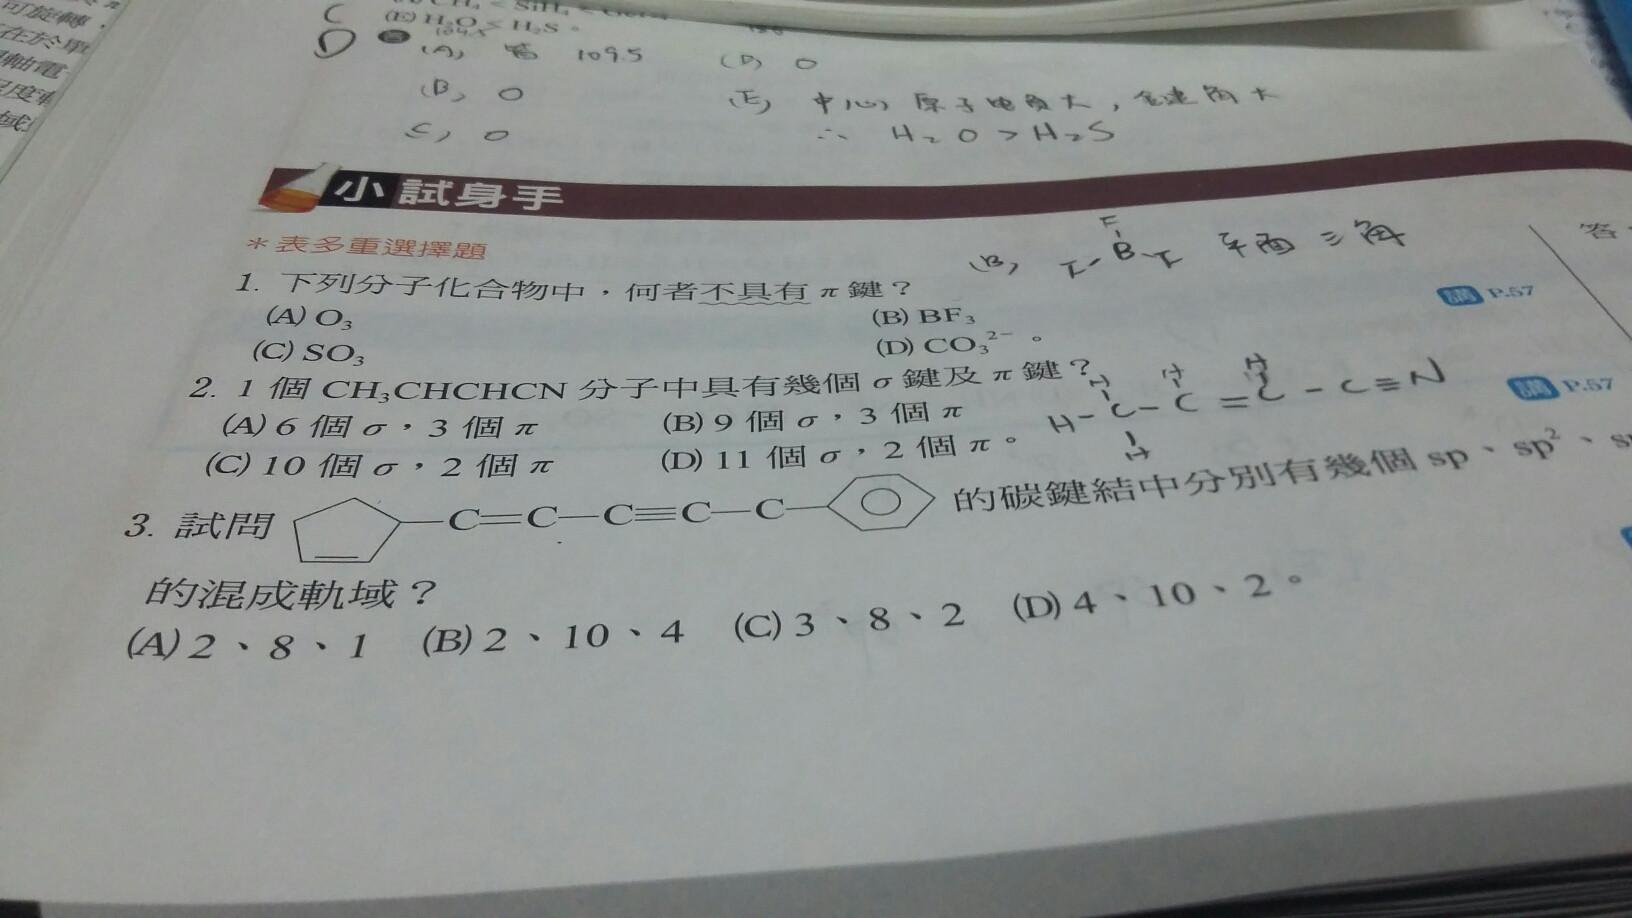 可旋轉,
在於單
軸電
域
C
(E) H₂O < H₂S。
104.5
D
(A) 皆 109.5
(D) O
(B) O
(E) 中心原子電負大,鍵角大
(C) O
∴ H₂O > H₂S
小試身手
*表多重選擇題
(B) F-B-F 平面三角
F
答
1. 下列分子化合物中,何者不具有 π 鍵?
講 P.57
(A) O₃
(B) BF₃
(C) SO₃
(D) CO₃²⁻。
2. 1 個 CH₃CHCHCN 分子中具有幾個 σ 鍵及 π 鍵?
講 P.57
H H H
H-C-C=C-C≡N
H
(A) 6 個 σ,3 個 π
(B) 9 個 σ,3 個 π
(C) 10 個 σ,2 個 π
(D) 11 個 σ,2 個 π。
3. 試問 —C=C—C≡C—C— 的碳鍵結中分別有幾個 sp、sp²、
的混成軌域?
(A) 2、8、1 (B) 2、10、4 (C) 3、8、2 (D) 4、10、2。